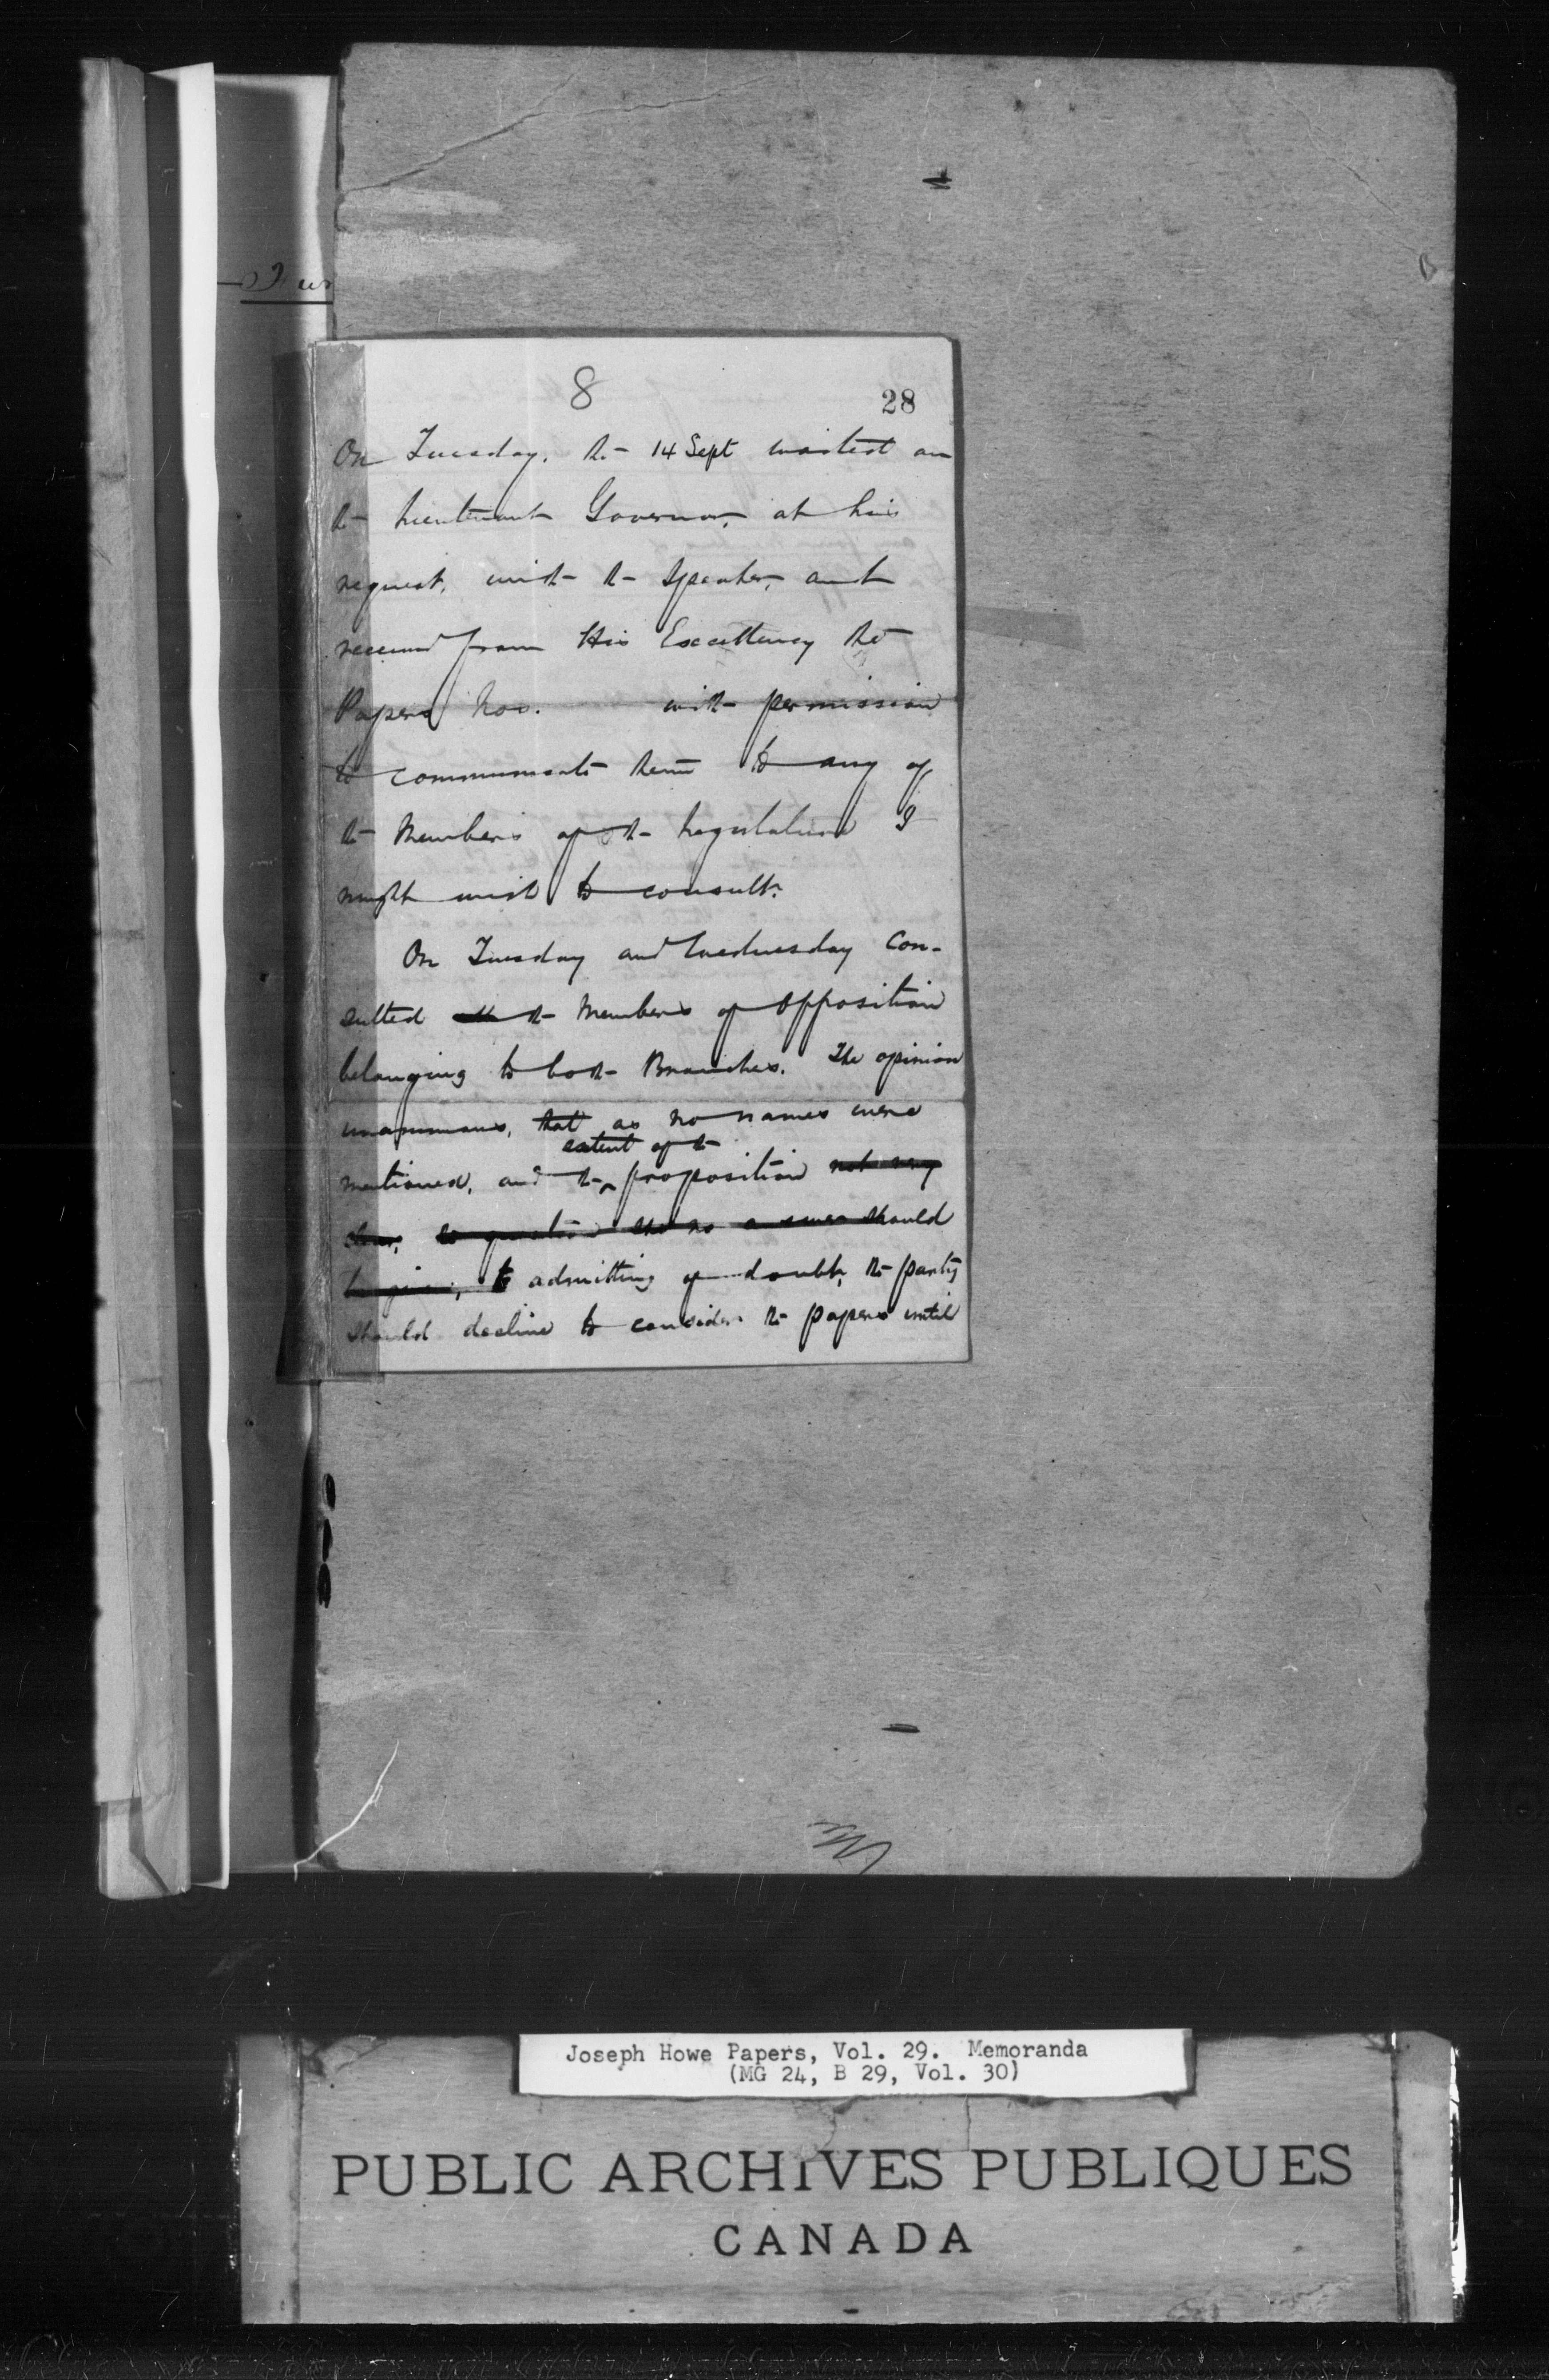 8
28
On Tuesday, the 14 Sept waited on
the Lieutenant Governor, at his
request, with the Speaker, and
received from His Excellency the
Papers Nos. with permission
to communicate them to any of
the Members of the Legislature I
might wish to consult.
On Tuesday and Wednesday Con-
sulted the Members of Opposition
belonging to both Branches. The opinion
unanimous, that as no names were
extent of the
mentioned, and the proposition not very
clear, should
be given, to admitting of doubt, the party
should decline to consider the papers until
Joseph Howe Papers, Vol. 29. Memoranda
(MG 24, B 29, Vol. 30)
PUBLIC ARCHIVES PUBLIQUES
CANADA